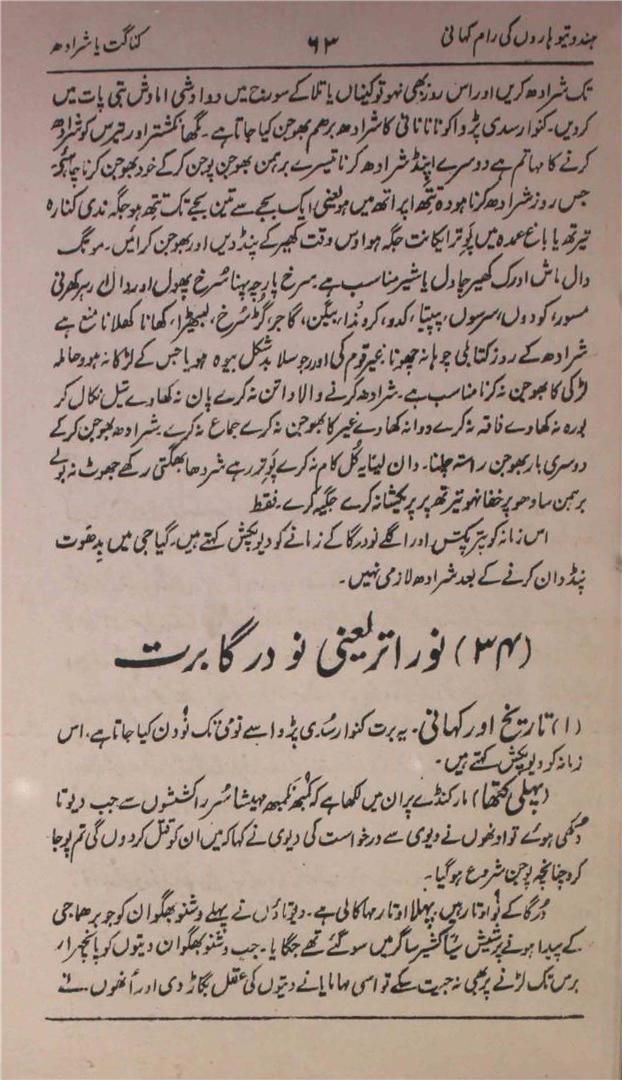 ہندو تیوہاروں کی رام کہانی ۶۳ کناگت یا شرادھ
تک شرادھ کریں اور اس روز بھی نہو تو کنیاں یا تلا کے سورج میں دوادشی اماوش تتی پات میں
کردیں۔ کنوار سدی پڑوا کو نانا نانی کا شرادھ برھم بھوجن کیا جاتا ہے۔ گھانگشتر اور تیرس کو شرادھ
کرنے کا مہاتم ہے دوسرے پنڈ شرادھ کرنا تیسرے برہمن بھوجن پوجن کرکے خود بھوجن کرنا چاہئے
جس روز شرادھ کرنا ہو وہ تتھ اپراتھ میں ہو یعنی ایک بجے سے تین بجے تک تتھ ہو جگہ ندی کنارہ
تیرتھ یا باغ عمدہ میں پوتر ایکانت جگہ ہو اوس وقت کھیر کے پنڈ دیں اور بھوجن کرائیں۔ مونگ
دال ماش ادرک کھیر چاول یا شیر مناسب ہے۔ سرخ پارچہ پہننا سُرخ پھول اور دال ارہر کھرنی
مسور، کودوں، سرسوں، پیپتا، کدو، کروندا، بیگن، گاجر، گڑ سُرخ، لبھیڑا، کھانا کھلانا منع ہے
شرادھ کے روز کتا بلی چوہا نہ چھونا غیر قوم کی اور رجوسلا بدشکل بیوہ ہو یا جس کے لڑکا نہ ہو حاملہ
لڑکی کا بھوجن نہ کرنا مناسب ہے۔ شرادھ کرنے والا داتن نہ کرے پان نہ کھاوے تیل نکال کر
بورہ نہ کھاوے فاقہ نہ کرے دوا نہ کھاوے غیر کا بھوجن نہ کرے جماع نہ کرے۔ شرادھ بھوجن کرکے
دوسری بار بھوجن راستہ چلنا۔ دان لینا یہ کُل کام نہ کرے پوتر رہے شردھا بھگتی رکھے جھوٹ نہ بولے
برہمن سادھو پر خفا نہو تیرتھ پر پریکشا نہ کرے جگیہ کرے۔ فقط
اس زمانہ کو پتر پکش اور اگلے نو درگا کے زمانے کو دیوپکش کہتے ہیں۔ گیا جی میں بدھوت
پنڈ دان کرنے کے بعد شرادھ لازمی نہیں۔
(۳۴) نوراتر یعنی نو درگا برت
(۱) تاریخ اور کہانی۔ یہ برت کنوار سُدی پڑوا سے نومی تک نو دن کیا جاتا ہے، اس
زمانہ کو دیوپکش کہتے ہیں۔
(پہلی کتھا) مارکنڈے پران میں لکھا ہے کہ شمبھ نمبھ مہیشاسُر راکششوں سے جب دیوتا
دکھی ہوئے تو اونھوں نے دیوی سے درخواست کی دیوی نے کہا کہ میں ان کو قتل کردوں گی تم پوجا
کرو چنانچہ پوجن شروع ہوگیا۔
دُرگا کے نو اوتار ہیں، پہلا اوتار مہاکالی ہے۔ دیوتاؤں نے پہلے وشنو بھگوان کو جو برھما جی
کے پیدا ہونے پر شیش سیّا کشیر ساگر میں سو گئے تھے جگایا۔ جب وشنو بھگوان دیتوں کو پانچہزار
برس تک لڑنے پر بھی نہ جیت سکے تو اسی مہامایا نے دیتوں کی عقل بگاڑ دی اور اُنھوں نے